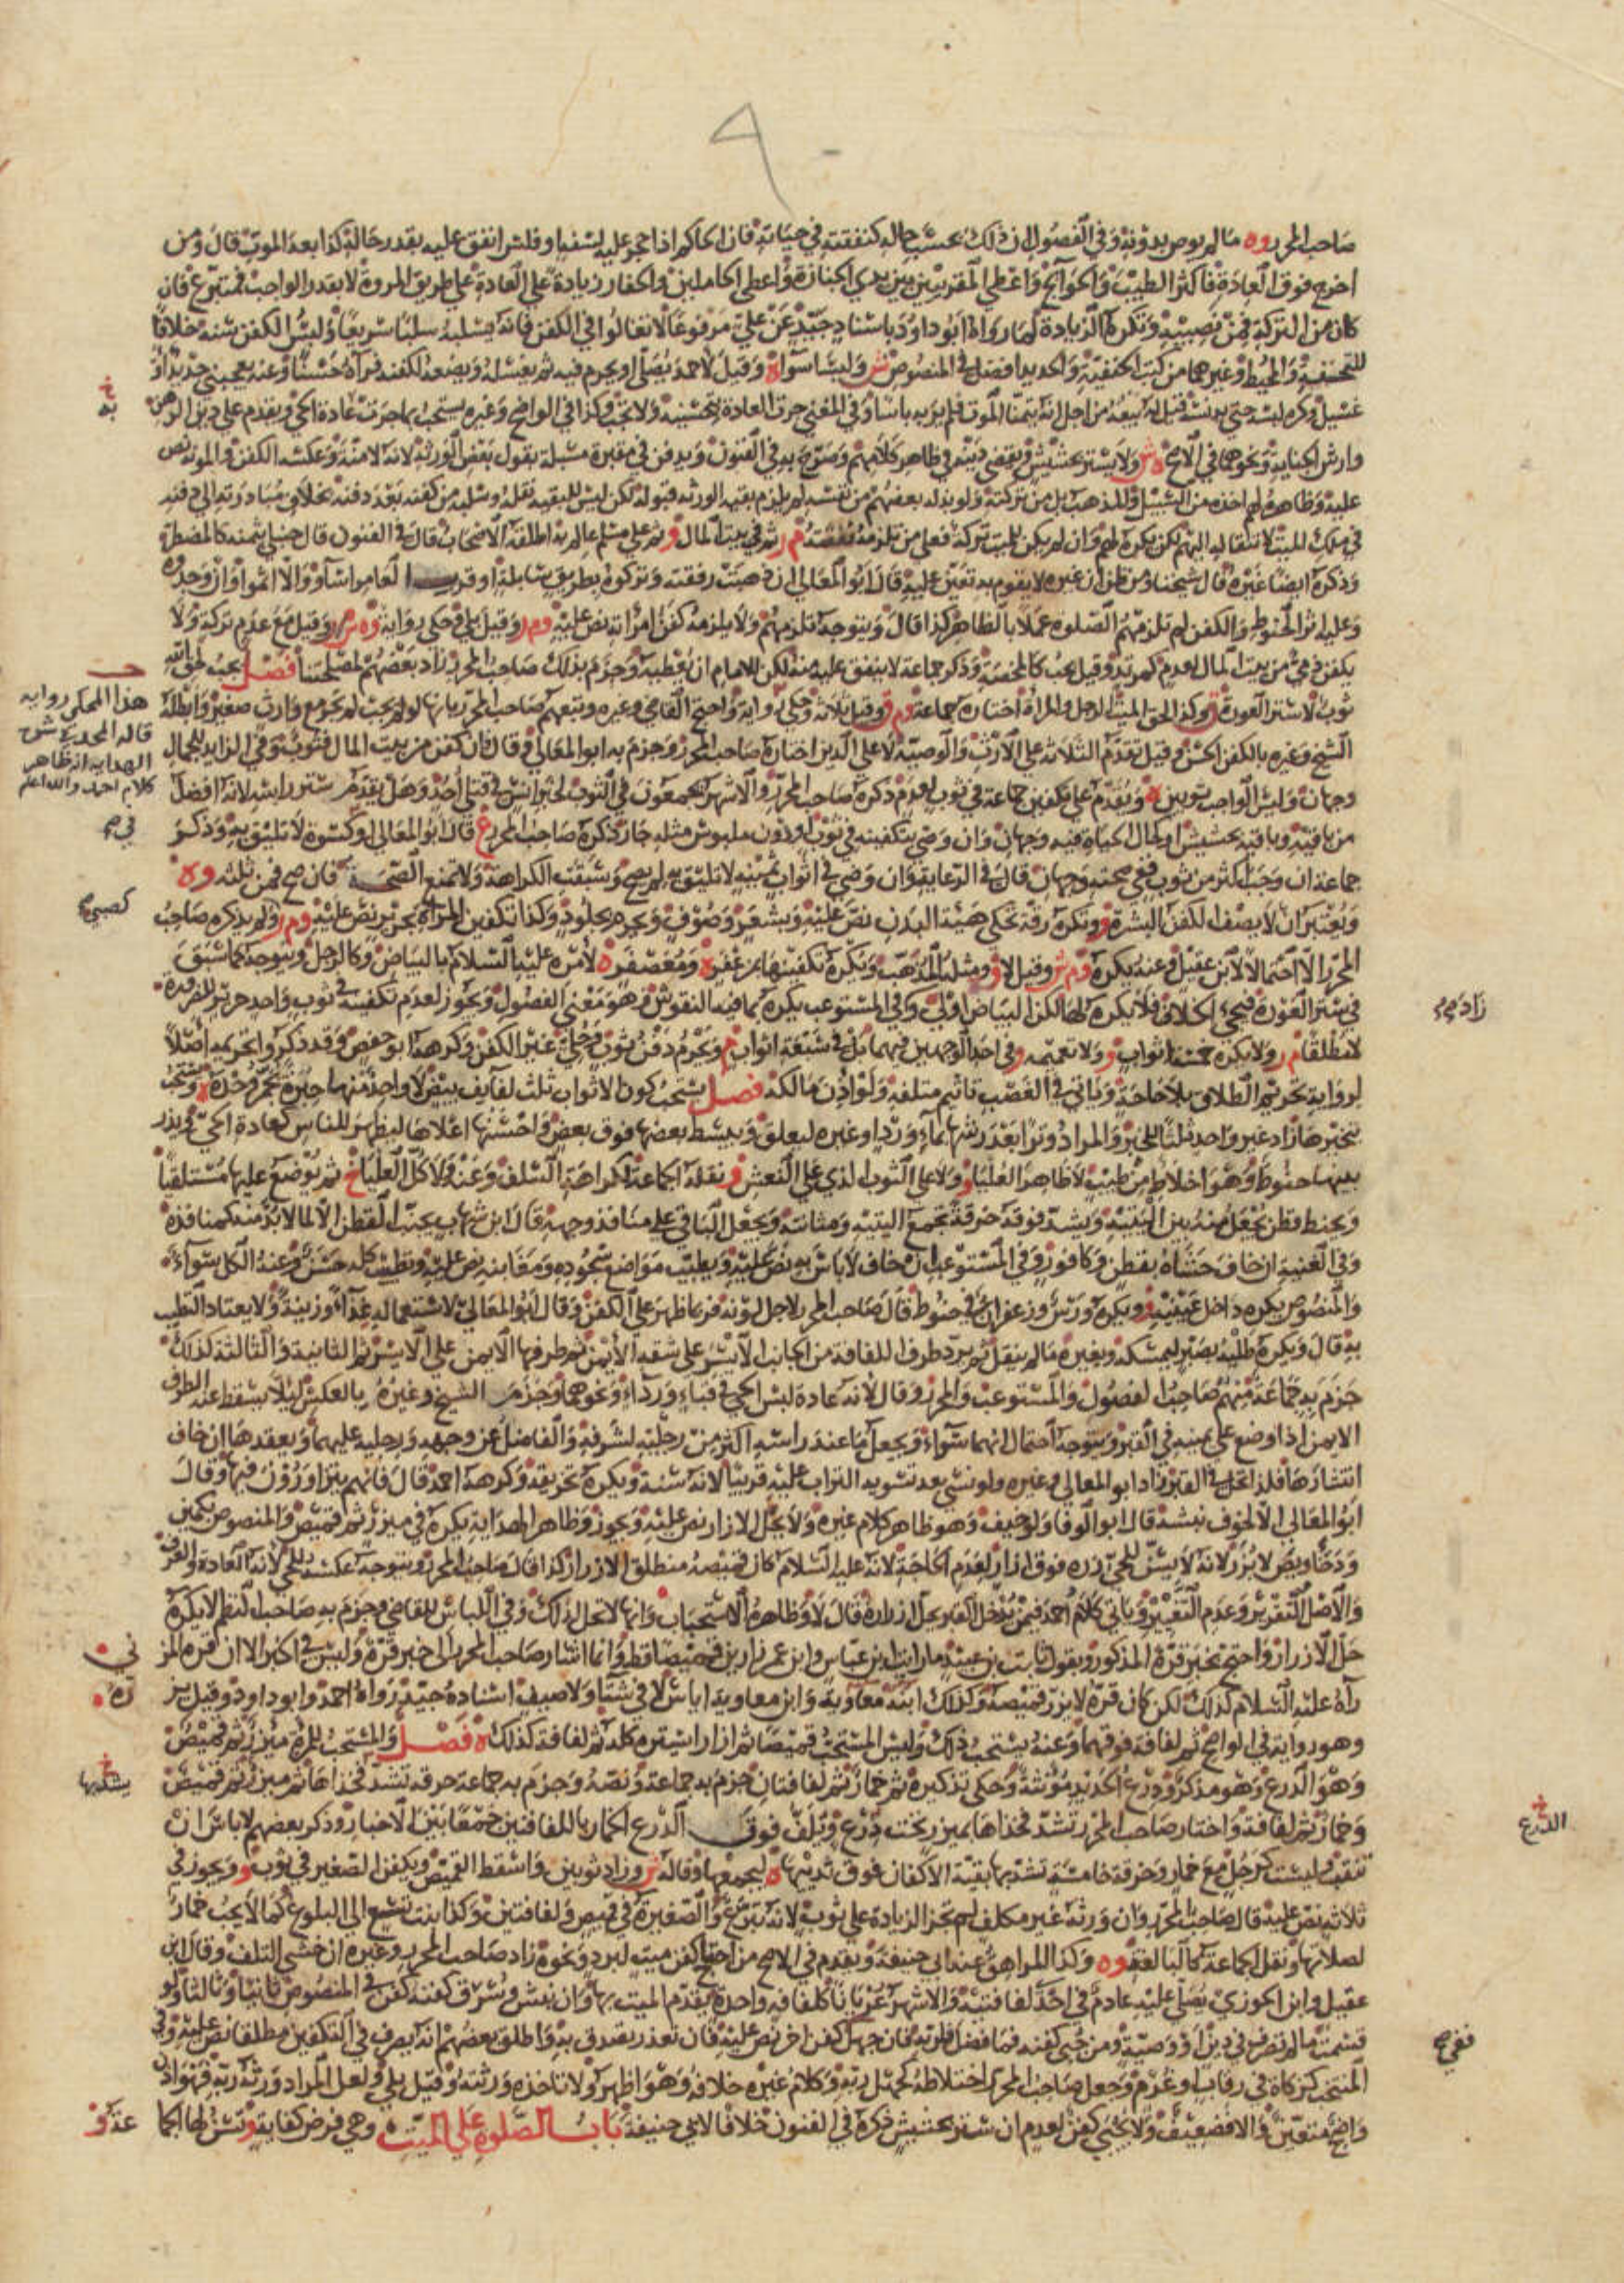 صاحب المحرر وه مالم يوص بدونه وفي الفصول ان ذلك بحسب حاله كنفقته في حياته فان الحاكم اذا حجر عليه لسفه او فلس انفق عليه بقدر حاله كذا بعد الموت قال ومن
اخرج فوق العادة فاكثر الطيب والحوايج واعطى المقريين بين يدي الجنازة واعطى الحاملين والحفار زيادة على العادة على طريق المروة لا بقدر الواجب فمتبرع فان
كان من التركة فمن نصيبه وتكره الزيادة لما رواه ابو داود باسناد جيد عن علي مرفوعا لا تغالوا في الكفن فانه يسلبه سلبا سريعا وليس الكفن سنة خلافا
للحنفية والمحيط وغيرهما من كتب الحنفية والجديد افضل في المنصوص ش وليسا سواء ه وقيل لاحمد يصلي او يحرم فيه ثم يغسله ويضعه لكفنه فرآه حسنا وعنه يعجبني جديد او
غسيل وكره لبسه حتى يدنسه
وارش الجناية ونحوهما في الاصح ه ش ولا يستر بحشيش ويقضى دينه في ظاهر كلامهم وصرح به في الفنون ويدفن في مقبرة مسبلة بقول بعض الورثة لانه لا منة وعكسه الكفن والمونة نص
عليه وظاهره لهم اخذه من السبيل وللمذهب بل من تركته ولو بذله بعضهم من نفسه لم يلزم بقيه الورثه قبوله لكن ليس للبقيه نقله وسلبه من كفنه بعد دفنه بخلاف مبادرته الى دفنه
في ملك الميت لانتقاله اليهم لكن يكره لهم وان لم يكن للميت تركة فعلى من تلزمه نفقته م ر ثم في بيت المال و ثم على مسلم عالم به اطلقه الاصحاب قال في الفنون قال حنبلي بثمنه كالمضطر
وذكره ايضا غيره قال شيخنا ومن ظن ان غيره لا يقوم به تعين عليه قال ابو المعالي ان في صبيت رفقته وتركوه بطريق سابلة او قرب العامر اساؤا والا اثموا وان وجدوه
وعليه اثر الحنوط والكفن لم تلزمهم الصلوة عملا بالظاهر كذا قال ويتوجه تلزمهم ولا يلزمه كفن امراته نص عليه وم ر وقيل بلى وحكي رواية وه ش وقيل مع عدم تركة ولا
يكفن ذمي من بيت المال لعدم كمرتد وقيل يجب كالمخمصة وذكر جماعة لا ينفق عليه منه لكن للامام ان يعطيه وجزم بذلك صاحب المحرر زاد بعضهم لمصلحتنا فصل يجب لحق الله
ثوب لا ستر العورة ق وكذا لحق الميت الرجل والمراة اختاره جماعة وم ق وقيل ثلاثة وحكي رواية واحتج القاضي وغيره وتبعهم صاحب المحرر بانها لو لم تجب لم تجز مع وارث صغير وابطله
الشيخ وغيره بالكفن الحسن وقيل تقدم الثلاثه على الارث والوصية لا على الدين اختاره صاحب المحرر وجزم به ابو المعالي وقال فان كفن من بيت المال فثوب وفي الزايد للجمال
وجهان وليس الواجب ثوبين ه ويقدم على تكفين جماعة في ثوب لعدم ذكره صاحب المحرر والاشهر يجمعون في الثوب لخبر انس في قتلى احد وهل يقدم ستر راسه لانه افضل
من باقيه وباقيه بحشيش او كحال الحياة فيه وجهان وان وصى بتكفينه في ثوب او دون ملبوس مثله جاز ذكره صاحب المحرر ع قال ابو المعالي او كسوة لا تليق به وذكر
جماعة ان وجب اكثر من ثوب ففي صحته وجهان قال في الرعاية وان وصى في اثواب ثمينه لا تليق به لم يصح وسبقت الكراهة ولا تمنع الصحة فان صح فمن ثلثه وه
ويعتبر ان لا يصف الكفن البشرة و وتكره رقة تحكي هيئة البدن نص عليه وبشعر وصوف ويحرم بجلود وكذا تكفين المراة بحرير نص عليه وم ر ولم يذكره صاحب
المحرر الا احتمالا لابن عقيل وعنه يكره وم ش وقيل لا و ومثله المذهب ويكره تكفينها بمزعفر ه ومعصفر ه لامره عليه السلام بالبياض وكالرجل ويتوجه كما سبق
في ستر العورة فيجيء الخلاف فلا يكره لها لكن البياض اولى وفي المستوعب يكره بما فيه النقوش وهو معنى الفصول ويجوز لعدم تكفينه في ثوب واحد حرير للضرورة
لا مطلقا م ر ولا يكره خمسة اثواب و ولا تعميمه و في احد الوجهين فيهما بل في سبعة اثواب م ويحرم دفن ثوب وحلي غير الكفن وكرهه ابو حفص وقد ذكروا تحريمه اصلا
لرواية تحريم الطلاق بلا حاجة وياتي في الغصب تاثيم متلفه ولو اذن مالكه فصل يستحب كون الاثواب ثلث لفايف بيض لا واحدة منها حبرة تجمر وحده ه ويستحب
تبخيرها زاد غير واحد ثلثا للخبر والمراد وترا بعد رشها بماء ورد او غيره ليعلق ويبسط بعضها فوق بعض واحسنها اعلاها ليظهر للناس كعادة الحي ويذر
بينها حنوط وهو اخلاط من طيب لا ظاهر العليا و ولا على الثوب الذي على النعش و نقله الجماعة لكراهة السلف وعنه ولا كل العليا خ ثم يوضع عليها مستلقيا
ويحنط قطن يجعل منه بين اليتيه ويشد فوقه خرقة تجمع اليتيه ومثانته ويجعل الباقي على منافذ وجهه قال ابن شهاب يجتنب القطن الا لما لا بد منه كمنافذه
وفي الغنية ان خاف حشاه بقطن وكافور وفي المستوعب ان خاف لا باس به نص عليه ويطيب مواضع سجوده ومغابنه نص عليه وتطييب كله حسن وعنه الكل سواء
والمنصوص يكره داخل عينيه و ويكره ورس وزعفران في حنوط قال صاحب المحرر لاجل لونه فربما ظهر على الكفن وقال ابو المعالي لاستعماله غذاء وزينة ولا يعتاد التطيب
به قال ويكره طليه بصبر ليمسكه وبغيره ما لم ينقل ثم يرد طرف اللفافة من الجانب الايسر على شقه الايمن ثم طرفها الايمن على الايسر ثم الثانية والثالثة كذلك
جزم به جماعة منهم صاحب الفصول والمستوعب والمحرر وقال لانه عادة لبس الحي في قباء ورداء ونحوهما وجزم الشيخ وغيره بالعكس ليلا يسقط عنه الطرف
الايمن اذا وضع على يمينه في القبر ويتوجه احتمال انهما سواء ويجعل ما عند راسه اكثر من رجليه لشرفه والفاضل عن وجهه ورجليه عليهما ويعقدها ان خاف
انتشارها فلذا تحل في القبر زاد ابو المعالي وغيره ولو نسي بعد تسوية التراب عليه قريبا لانه سنة ويكره تخريقه وكرهه احمد قال فانهم يتزاورون فيها وقال
ابو المعالي الا لخوف نبشه قال ابو الوفا ولو خيف وهو ظاهر كلام غيره ولا يحل الازار نص عليه ويجوز وظاهر الهداية يكره في ميزر ثم قميص والمنصوص بكمين
ودخاريص لا بزر لانه لا يسن للحي زره فوق ازار لعدم الحاجة لانه عليه السلام كان قميصه منطلق الازرار كذا قال صاحب المحرر ويتوجه عكسه للحي لانه العادة والعرف
والاصل التقرير وعدم التغيير وياتي كلام احمد فيمن يدخل القبر يحل ازراره قال لا وظاهره الاستحباب وانها لا تحل لذلك وفي اللباس للقاضي وجزم به صاحب النظم لا يكره
حل الازرار واحتج بخبر قرة المذكور وبقول ثابت بن عبيد ما رايت ابن عباس وابن عمر زارين قميصا قط وانما اشار صاحب المحرر الى خبر قرة وليس في الخبر الا ان قرة المزني
رآه عليه السلام كذلك لكن كان قرة لا يزر قميصه وكذلك ابنه معاوية وابن معاوية اياس لا في شتا ولا صيف اسناده جيد رواه احمد وابو داود وقيل
وهو رواية في الواضح ثم لفافة فوقهما وعنه يستحب ذلك وليس المستحب قميصا ثم ازارا يستره كله ثم لفافة كذلك ه فصل والمستحب للمراة ميزر ثم قميص
وهو الدرع وهو مذكر ودرع الحديد مونثة وحكي تذكيره ثم خمار ثم لفافتان جزم به جماعة ونصه وجزم به جماعة خرقه تشد فخذاها ثم ميزر ثم قميص
وخمار ثم لفافة واختار صاحب المحرر تشد فخذاها بميزر تحت درع ويلف فوق الدرع الخمار باللفافتين جمعا بين الاخبار وذكر بعضهم لا باس ان
تنقب وليست كرجل مع خمار وخرقة خامسة تشد بها بقية الاكفان فوق ثدييها ه ليجمعها وقاله ش وزاد ثوبين واسقط القميص ويكفن الصغير في ثوب و ويجوز في
ثلاثه نص عليه قال صاحب المحرر وان ورثه غير مكلف لم تجز الزيادة على ثوب لانه تبرع والصغيرة في قميص ولفافتين وكذا بنت تسع الى البلوغ كما لا يجب خمار
لصلاتها ونقل الجماعة كالبالغة وه وكذا المراهق عند ابي حنيفة ويقدم في الاصح من احتاج كفن ميت لبرد ونحوه زاد صاحب المحرر وغيره ان خشي التلف وقال ابن
عقيل وابن الجوزي يصلي عليه عادم في احدى لفافتيه والاشهر عريانا كلفافه واحدة يقدم الميت بها وان نبش وسرق كفنه كفن في المنصوص ثانيا وثالثا ولو
قسمت ما لم تصرف في دين او وصية ومن جبي كفنه فما فضل فلربه فان جهل كفن اخر نص عليه فان تعذر تصدق به واطلق بعضهم انه يصرف في التكفين مطلقا نص عليه وفي
المنتخب كزكاة في رقاب او غرم وجعل صاحب المحرر اختلاطه كجهل ربه وكلام غيره خلافه وهو اظهر ولا تاخذه ورثته وقيل بلى ولعل المراد ورثة ربه فهو اذن
واضح متعين والا فضعيف ولا يجبى كفن لعدم ان ستر بحشيش ذكره في الفنون خلافا لابي حنيفة باب الصلوة على الميت وهي فرض كفاية و تسن لها الجما عة و
هذا المحكي رواية
قاله المجد في شرح
الهداية انه ظاهر
كلام احمد والله اعلم
في صح
زاد صح
يشد بها
الدرع
ففي صح